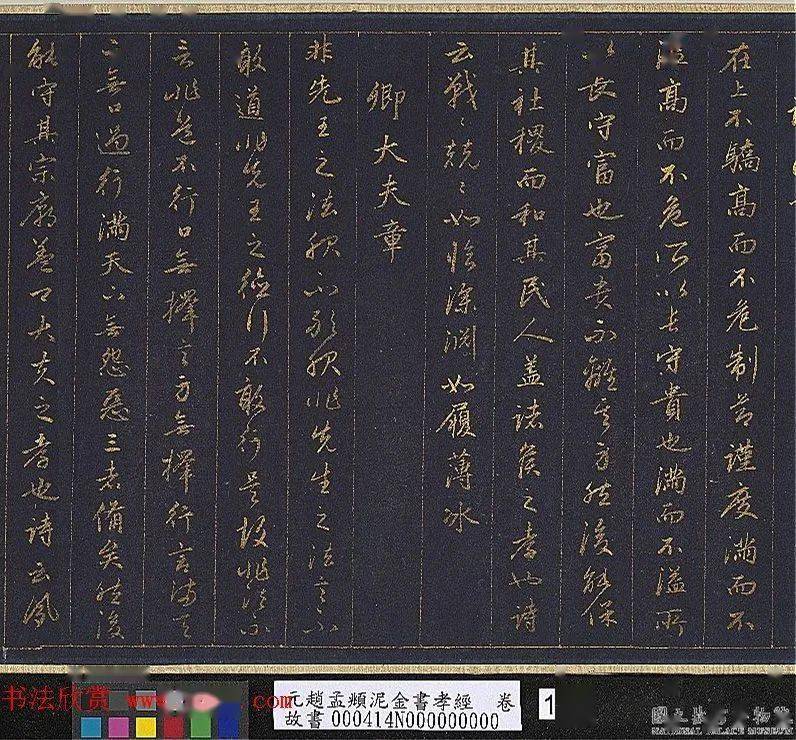 在上不驕高而不危制節謹度滿而不
溢高而不危所以長守貴也滿而不溢所
以長守富也富貴不離其身然後能保
其社稷而和其民人蓋諸侯之孝也詩
云戰〻兢〻如臨深淵如履薄冰
卿大夫章
非先王之法服不敢服非先王之法言不
敢道非先王之德行不敢行是故非法不
言非道不行口無擇言身無擇行言滿天
下無口過行滿天下無怨惡三者備矣然後
能守其宗廟蓋卿大夫之孝也詩云夙
书法欣赏 www. com
元趙孟頫泥金書孝經 卷
故書000414N000000000
1
NATIONAL PALACE MUSEUM